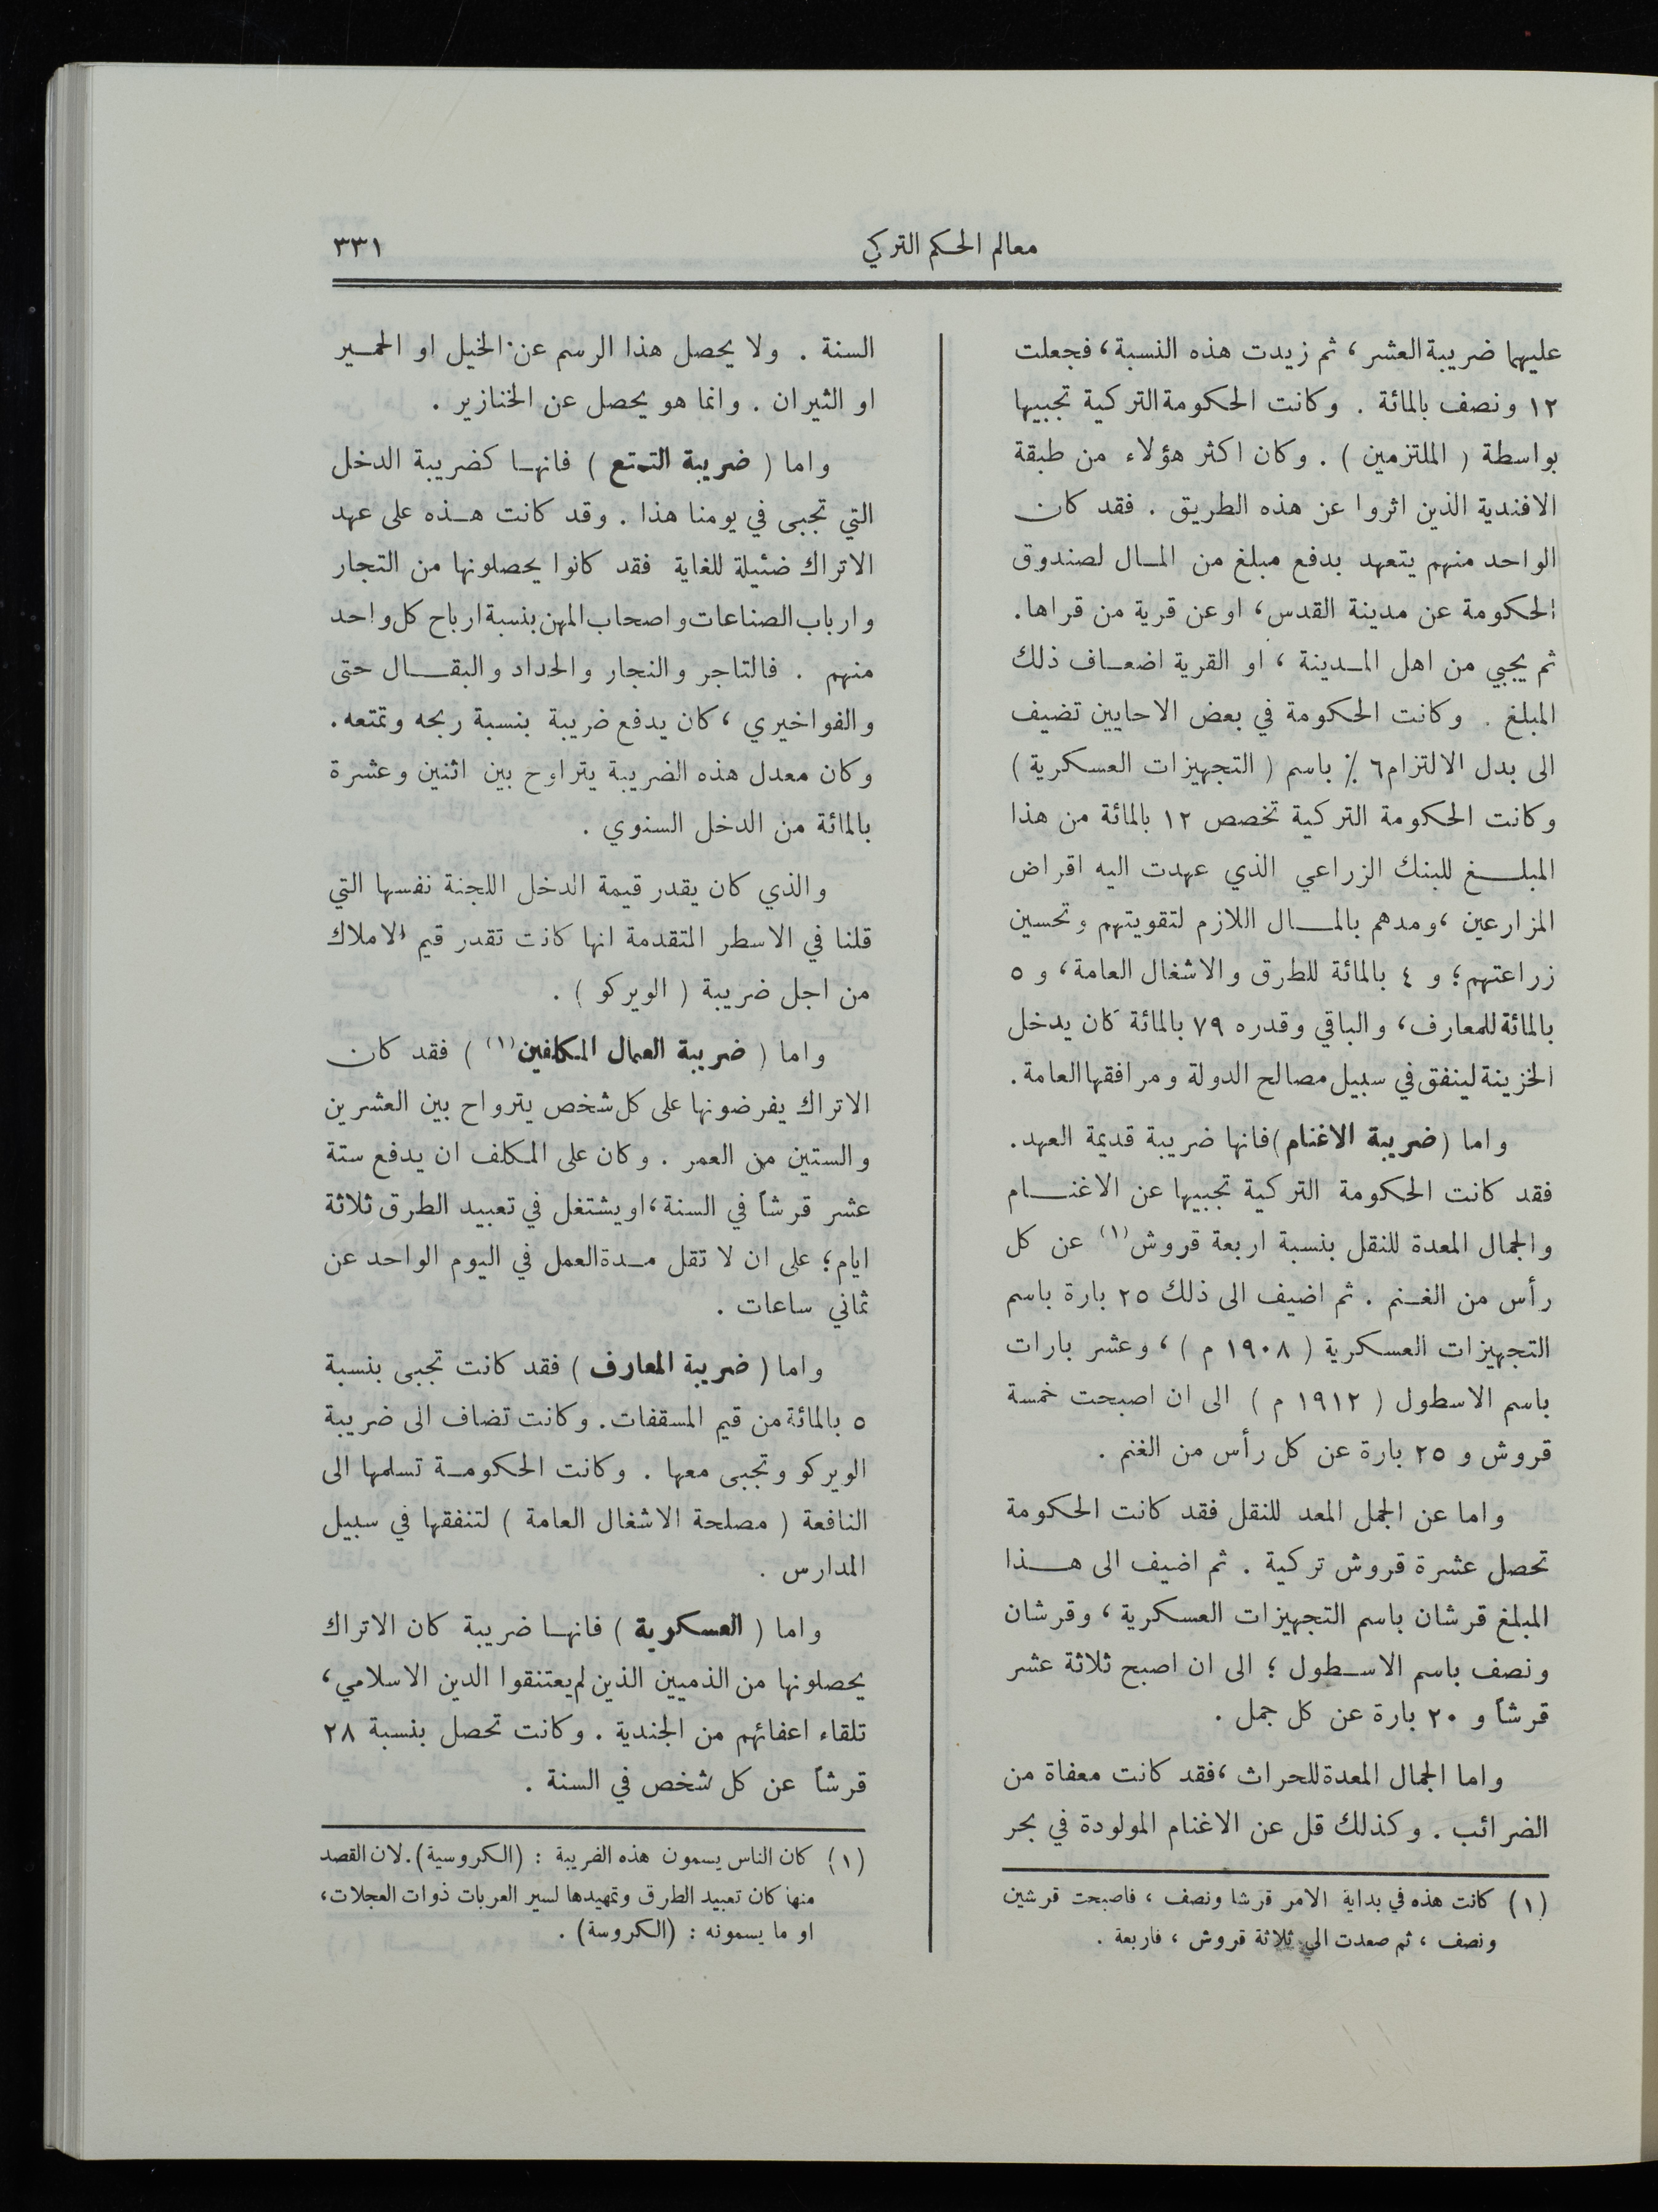 معالم الحكم التركي
٣٣١
عليها ضريبة العشر، ثم زيدت هذه النسبة، فجعلت
١٢ ونصف بالمائة . وكانت الحكومة التركية تجبيها
بواسطة ( الملتزمين ) . وكان اكثر هؤلاء من طبقة
الافندية الذين اثروا عن هذه الطريق . فقد كان
الواحد منهم يتعهد بدفع مبلغ من المال لصندوق
الحكومة عن مدينة القدس، او عن قرية من قراها.
ثم يجبي من اهل المدينة ، او القرية اضعاف ذلك
المبلغ . وكانت الحكومة في بعض الاحايين تضيف
الى بدل الالتزام ٦ ٪ باسم ( التجهيزات العسكرية )
وكانت الحكومة التركية تخصص ١٢ بالمائة من هذا
المبلغ للبنك الزراعي الذي عهدت اليه اقراض
المزارعين ،ومدهم بالمال اللازم لتقويتهم وتحسين
زراعتهم؛ و ٤ بالمائة للطرق والاشغال العامة، و ٥
بالمائة للمعارف، والباقي وقدره ٧٩ بالمائة كان يدخل
الخزينة لينفق في سبيل مصالح الدولة ومرافقها العامة.
واما (ضريبة الاغنام) فانها ضريبة قديمة العهد.
فقد كانت الحكومة التركية تجبيها عن الاغنام
والجمال المعدة للنقل بنسبة اربعة قروش(١) عن كل
رأس من الغنم . ثم اضيف الى ذلك ٢٥ بارة باسم
التجهيزات العسكرية ( ١٩٠٨ م ) ، وعشر بارات
باسم الاسطول ( ١٩١٢ م ) الى ان اصبحت خمسة
قروش و ٢٥ بارة عن كل رأس من الغنم .
واما عن الجمل المعد للنقل فقد كانت الحكومة
تحصل عشرة قروش تركية . ثم اضيف الى هذا
المبلغ قرشان باسم التجهيزات العسكرية ، وقرشان
ونصف باسم الاسطول ؛ الى ان اصبح ثلاثة عشر
قرشاً و ٢٠ بارة عن كل جمل .
واما الجمال المعدة للحراث ،فقد كانت معفاة من
الضرائب . وكذلك قل عن الاغنام المولودة في بحر
(١) كانت هذه في بداية الامر قرشا ونصف ، فاصبحت قرشين
ونصف ، ثم صعدت الى ثلاثة قروش ، فاربعة .
السنة . ولا يحصل هذا الرسم عن الخيل او الحمير
او الثيران . وانما هو يحصل عن الخنازير .
واما ( ضريبة التمتع ) فانها كضريبة الدخل
التي تجبى في يومنا هذا . وقد كانت هذه على عهد
الاتراك ضئيلة للغاية فقد كانوا يحصلونها من التجار
وارباب الصناعات واصحاب المهن بنسبة ارباح كل واحد
منهم . فالتاجر والنجار والحداد والبقال حتى
والفواخيري ،كان يدفع ضريبة بنسبة ربحه وتمتعه.
وكان معدل هذه الضريبة يتراوح بين اثنين وعشرة
بالمائة من الدخل السنوي .
والذي كان يقدر قيمة الدخل اللجنة نفسها التي
قلنا في الاسطر المتقدمة انها كانت تقدر قيم الاملاك
من اجل ضريبة ( الويركو ) .
واما ( ضريبة العمال المكلفين(١) ) فقد كان
الاتراك يفرضونها على كل شخص يترواح بين العشرين
والستين من العمر . وكان على المكلف ان يدفع ستة
عشر قرشاً في السنة، او يشتغل في تعبيد الطرق ثلاثة
ايام؛ على ان لا تقل مدة العمل في اليوم الواحد عن
ثماني ساعات .
واما ( ضريبة المعارف ) فقد كانت تجبى بنسبة
٥ بالمائة من قيم المسقفات. وكانت تضاف الى ضريبة
الويركو وتجبى معها . وكانت الحكومة تسلمها الى
النافعة ( مصلحة الاشغال العامة ) لتنفقها في سبيل
المدارس .
واما ( العسكرية ) فانها ضريبة كان الاتراك
يحصلونها من الذميين الذين لم يعتنقوا الدين الاسلامي،
تلقاء اعفائهم من الجندية . وكانت تحصل بنسبة ٢٨
قرشاً عن كل شخص في السنة .
(١) كان الناس يسمون هذه الضريبة : (الكروسية). لان القصد
منها كان تعبيد الطرق وتمهيدها لسير العربات ذوات العجلات،
او ما يسمونه : (الكروسة) .